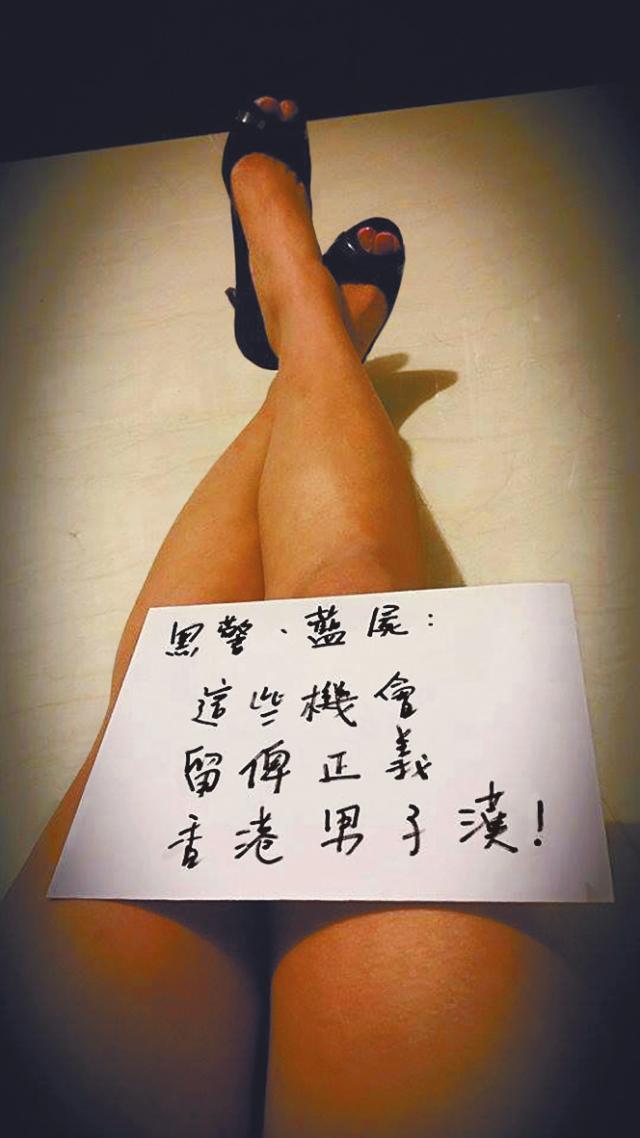 黑警、藍屍：
這些機會
留俾正義
香港男子漢！